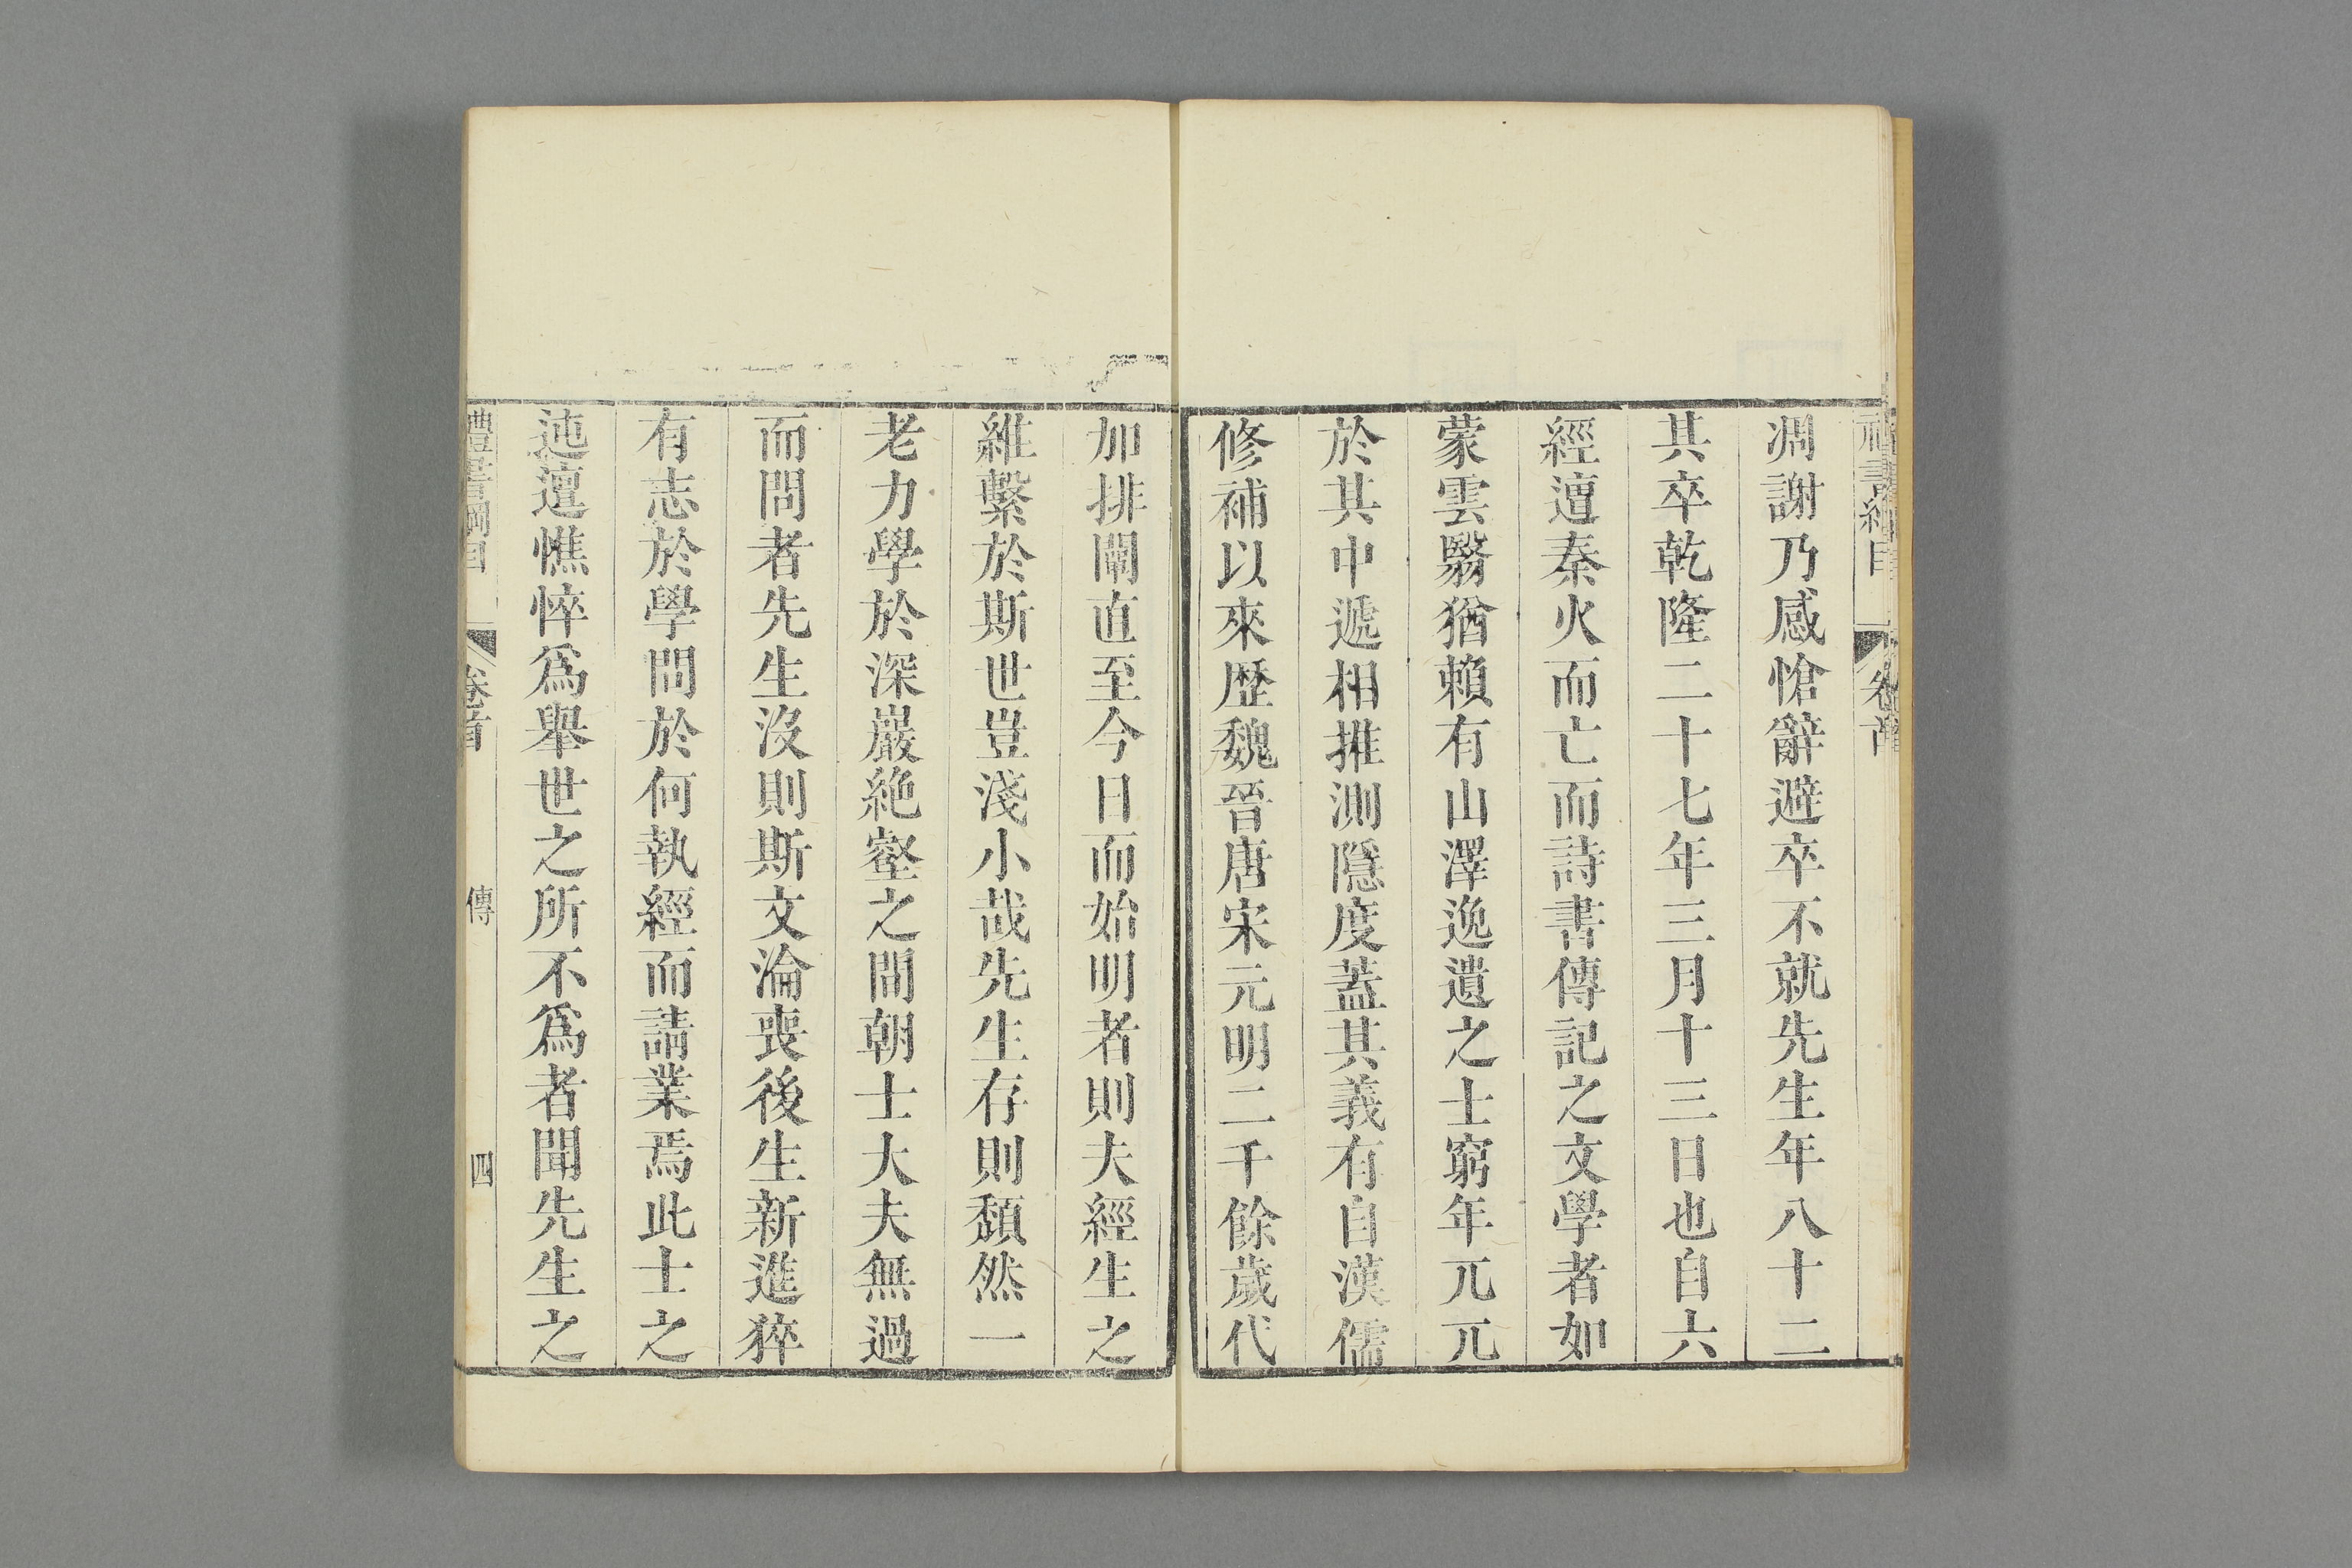 凋謝乃感愴辭避卒不就先生年八十二
其卒乾隆二十七年三月十三日也自六
經邅秦火而亡而詩書傳記之文學者如
蒙雲翳猶賴有山澤逸遺之士窮年兀兀
於其中遞相推測隱度蓋其義有自漢儒
修補以來歷魏晉唐宋元明二千餘歲代
加排闡直至今日而始明者則夫經生之
維繫於斯世豈淺小哉先生存則頽然一
老力學於深巖絶壑之間朝士大夫無過
而問者先生沒則斯文淪喪後生新進猝
有志於學問於何執經而請業焉此士之
迍邅憔悴爲舉世之所不爲者聞先生之
禮書綱目 卷首 傳 四